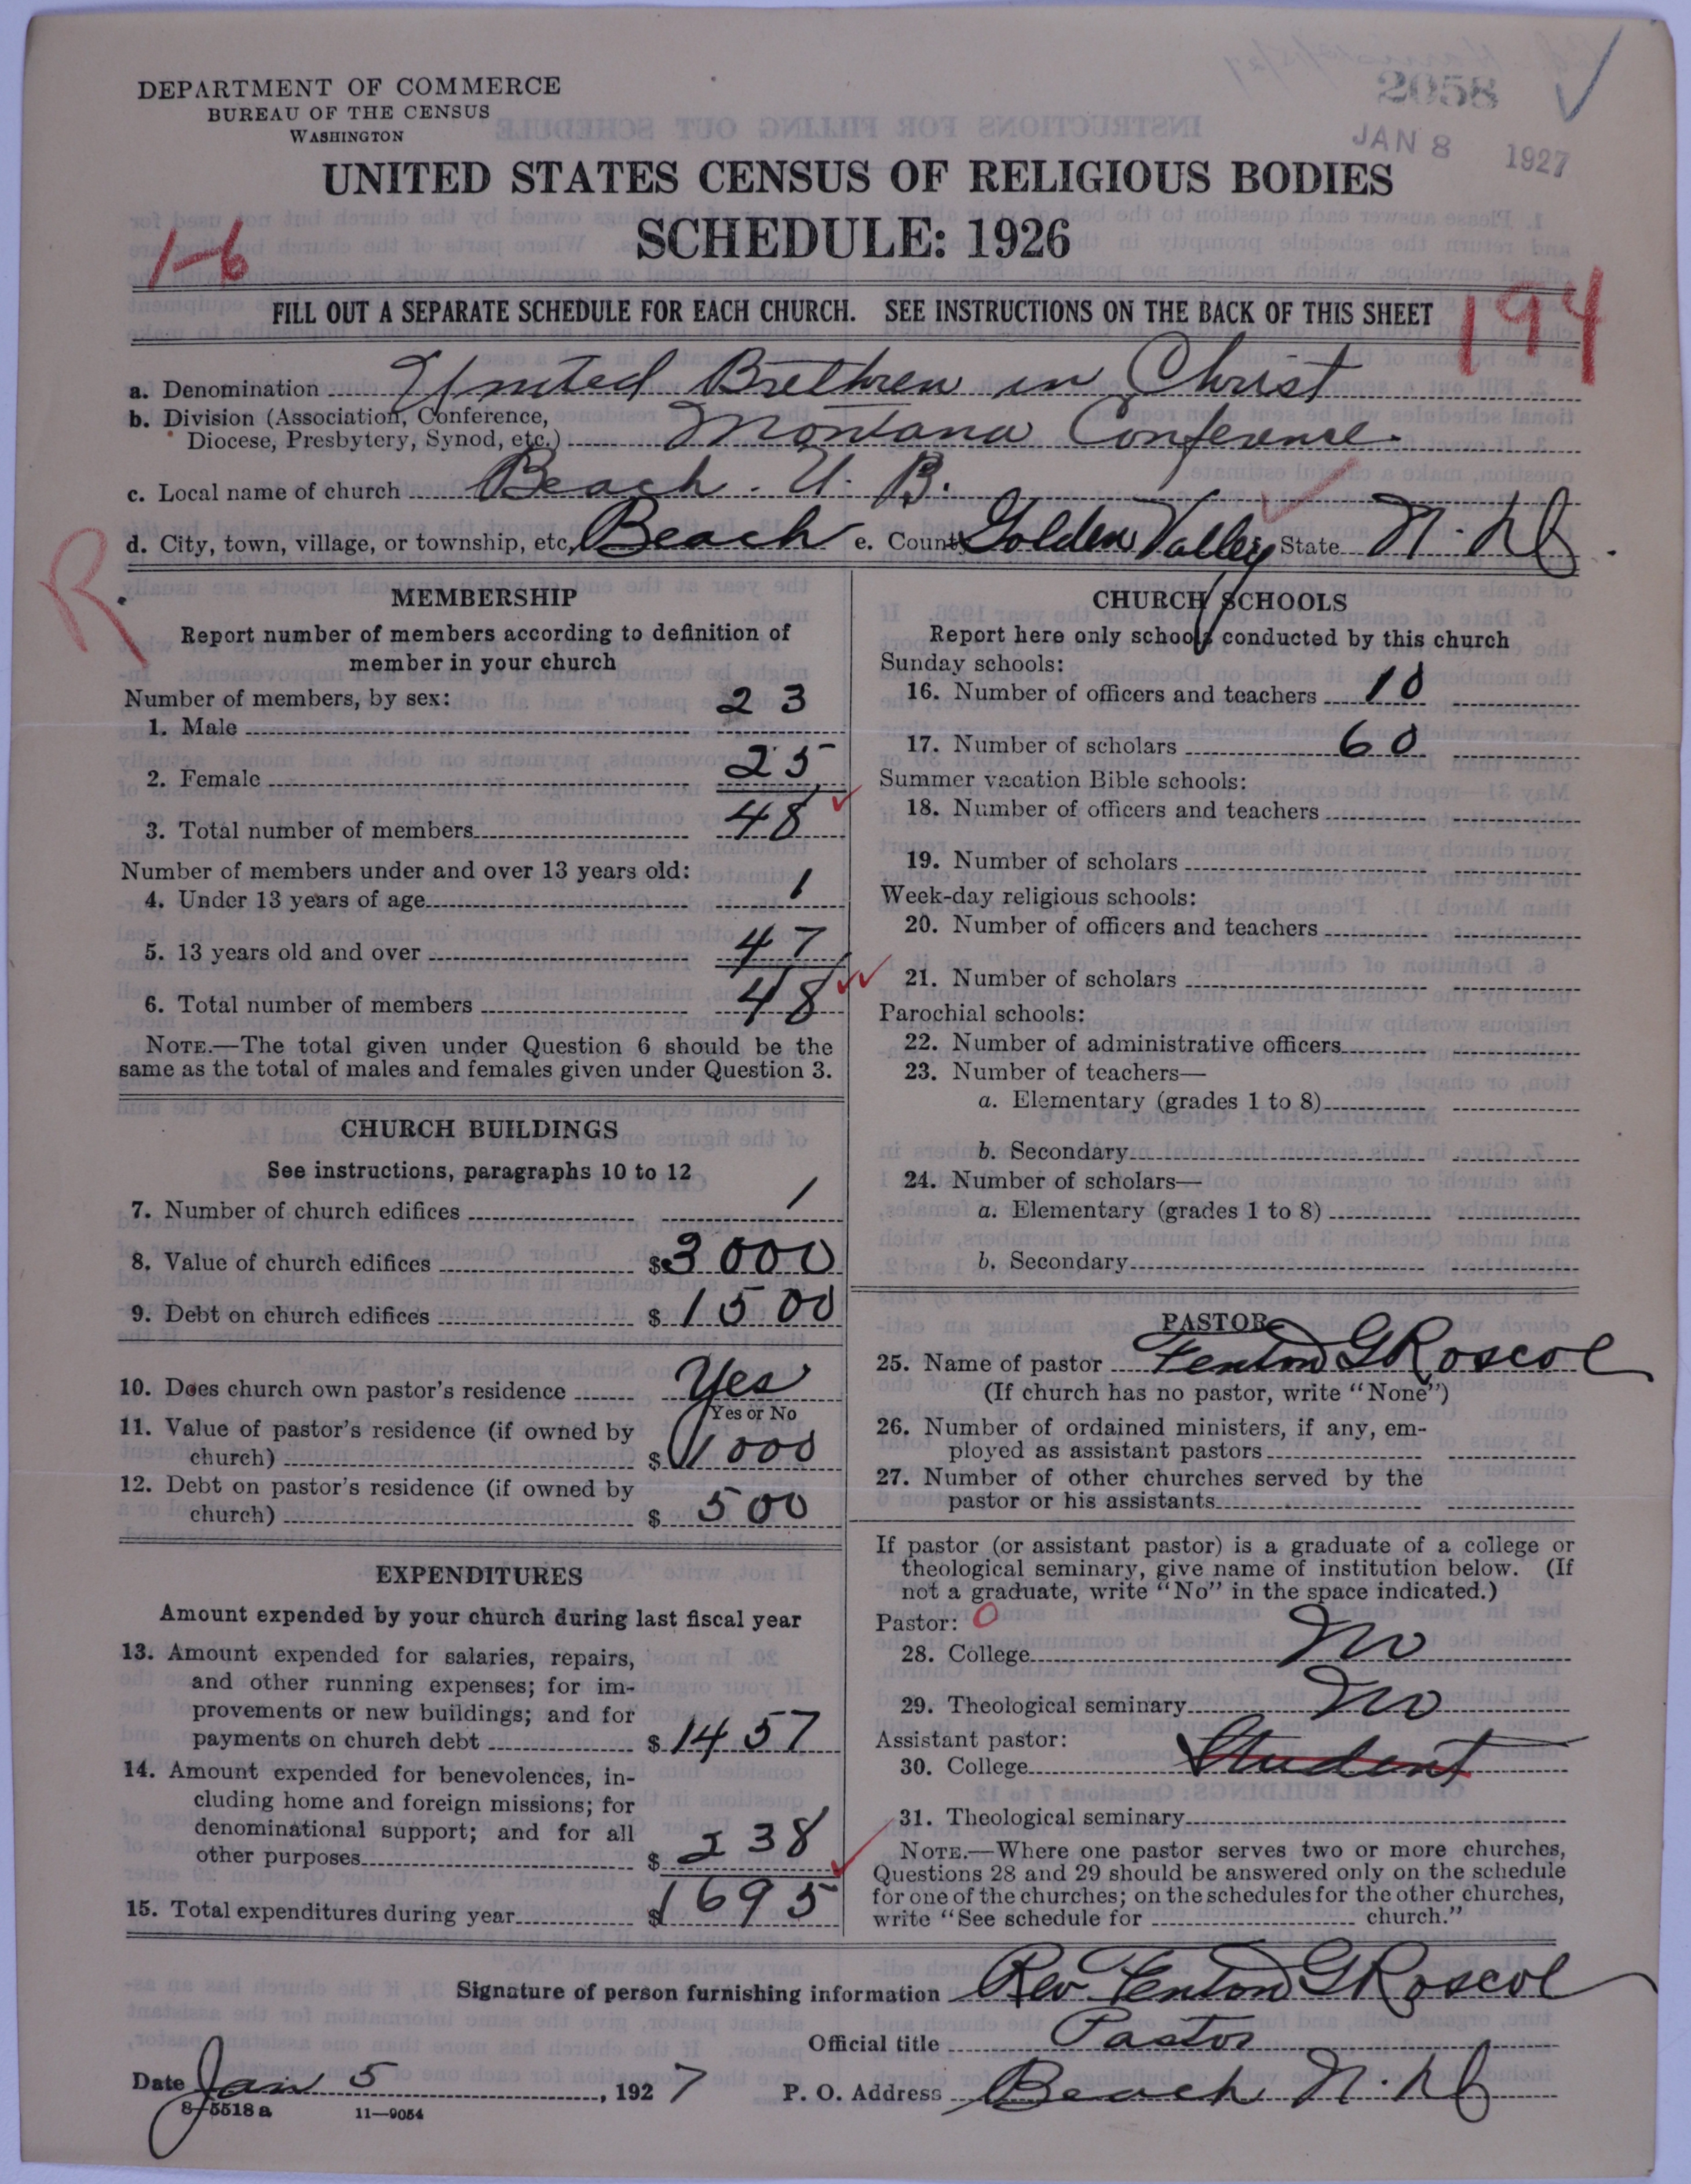 DEPARTMENT OF COMMERCE
BUREAU OF THE CENSUS
WASHINGTON
2058
JAN 8 1927
UNITED STATES CENSUS OF RELIGIOUS BODIES
SCHEDULE: 1926
1-6
FILL OUT A SEPARATE SCHEDULE FOR EACH CHURCH. SEE INSTRUCTIONS ON THE BACK OF THIS SHEET
194
a. Denomination United Brethren in Christ
b. Division (Association, Conference,
Diocese, Presbytery, Synod, etc.) Montana Conference.
c. Local name of church Beach. U. B.
d. City, town, village, or township, etc. Beach e. County Golden Valley State N. D.
R
MEMBERSHIP
Report number of members according to definition of
member in your church
Number of members, by sex:
1. Male 23
2. Female 25
3. Total number of members 48
Number of members under and over 13 years old:
4. Under 13 years of age 1
5. 13 years old and over 47
6. Total number of members 48
NOTE.—The total given under Question 6 should be the
same as the total of males and females given under Question 3.
CHURCH BUILDINGS
See instructions, paragraphs 10 to 12
7. Number of church edifices 1
8. Value of church edifices $ 3000
9. Debt on church edifices $ 1500
10. Does church own pastor's residence Yes
Yes or No
11. Value of pastor's residence (if owned by
church) $ 1000
12. Debt on pastor's residence (if owned by
church) $ 500
EXPENDITURES
Amount expended by your church during last fiscal year
13. Amount expended for salaries, repairs,
and other running expenses; for im-
provements or new buildings; and for
payments on church debt $ 1457
14. Amount expended for benevolences, in-
cluding home and foreign missions; for
denominational support; and for all
other purposes $ 238
15. Total expenditures during year $ 1695
CHURCH SCHOOLS
Report here only schools conducted by this church
Sunday schools:
16. Number of officers and teachers 10
17. Number of scholars 60
Summer vacation Bible schools:
18. Number of officers and teachers
19. Number of scholars
Week-day religious schools:
20. Number of officers and teachers
21. Number of scholars
Parochial schools:
22. Number of administrative officers
23. Number of teachers—
a. Elementary (grades 1 to 8)
b. Secondary
24. Number of scholars—
a. Elementary (grades 1 to 8)
b. Secondary
PASTOR
25. Name of pastor Fenton G Roscoe
(If church has no pastor, write "None")
26. Number of ordained ministers, if any, em-
ployed as assistant pastors
27. Number of other churches served by the
pastor or his assistants
If pastor (or assistant pastor) is a graduate of a college or
theological seminary, give name of institution below. (If
not a graduate, write "No" in the space indicated.)
Pastor: 0
28. College No
29. Theological seminary No
Assistant pastor:
30. College Student
31. Theological seminary
NOTE.—Where one pastor serves two or more churches,
Questions 28 and 29 should be answered only on the schedule
for one of the churches; on the schedules for the other churches,
write "See schedule for church."
Signature of person furnishing information Rev. Fenton G Roscoe
Official title Pastor
Date Jan 5, 1927 P. O. Address Beach N. D.
8-5518a 11—9054